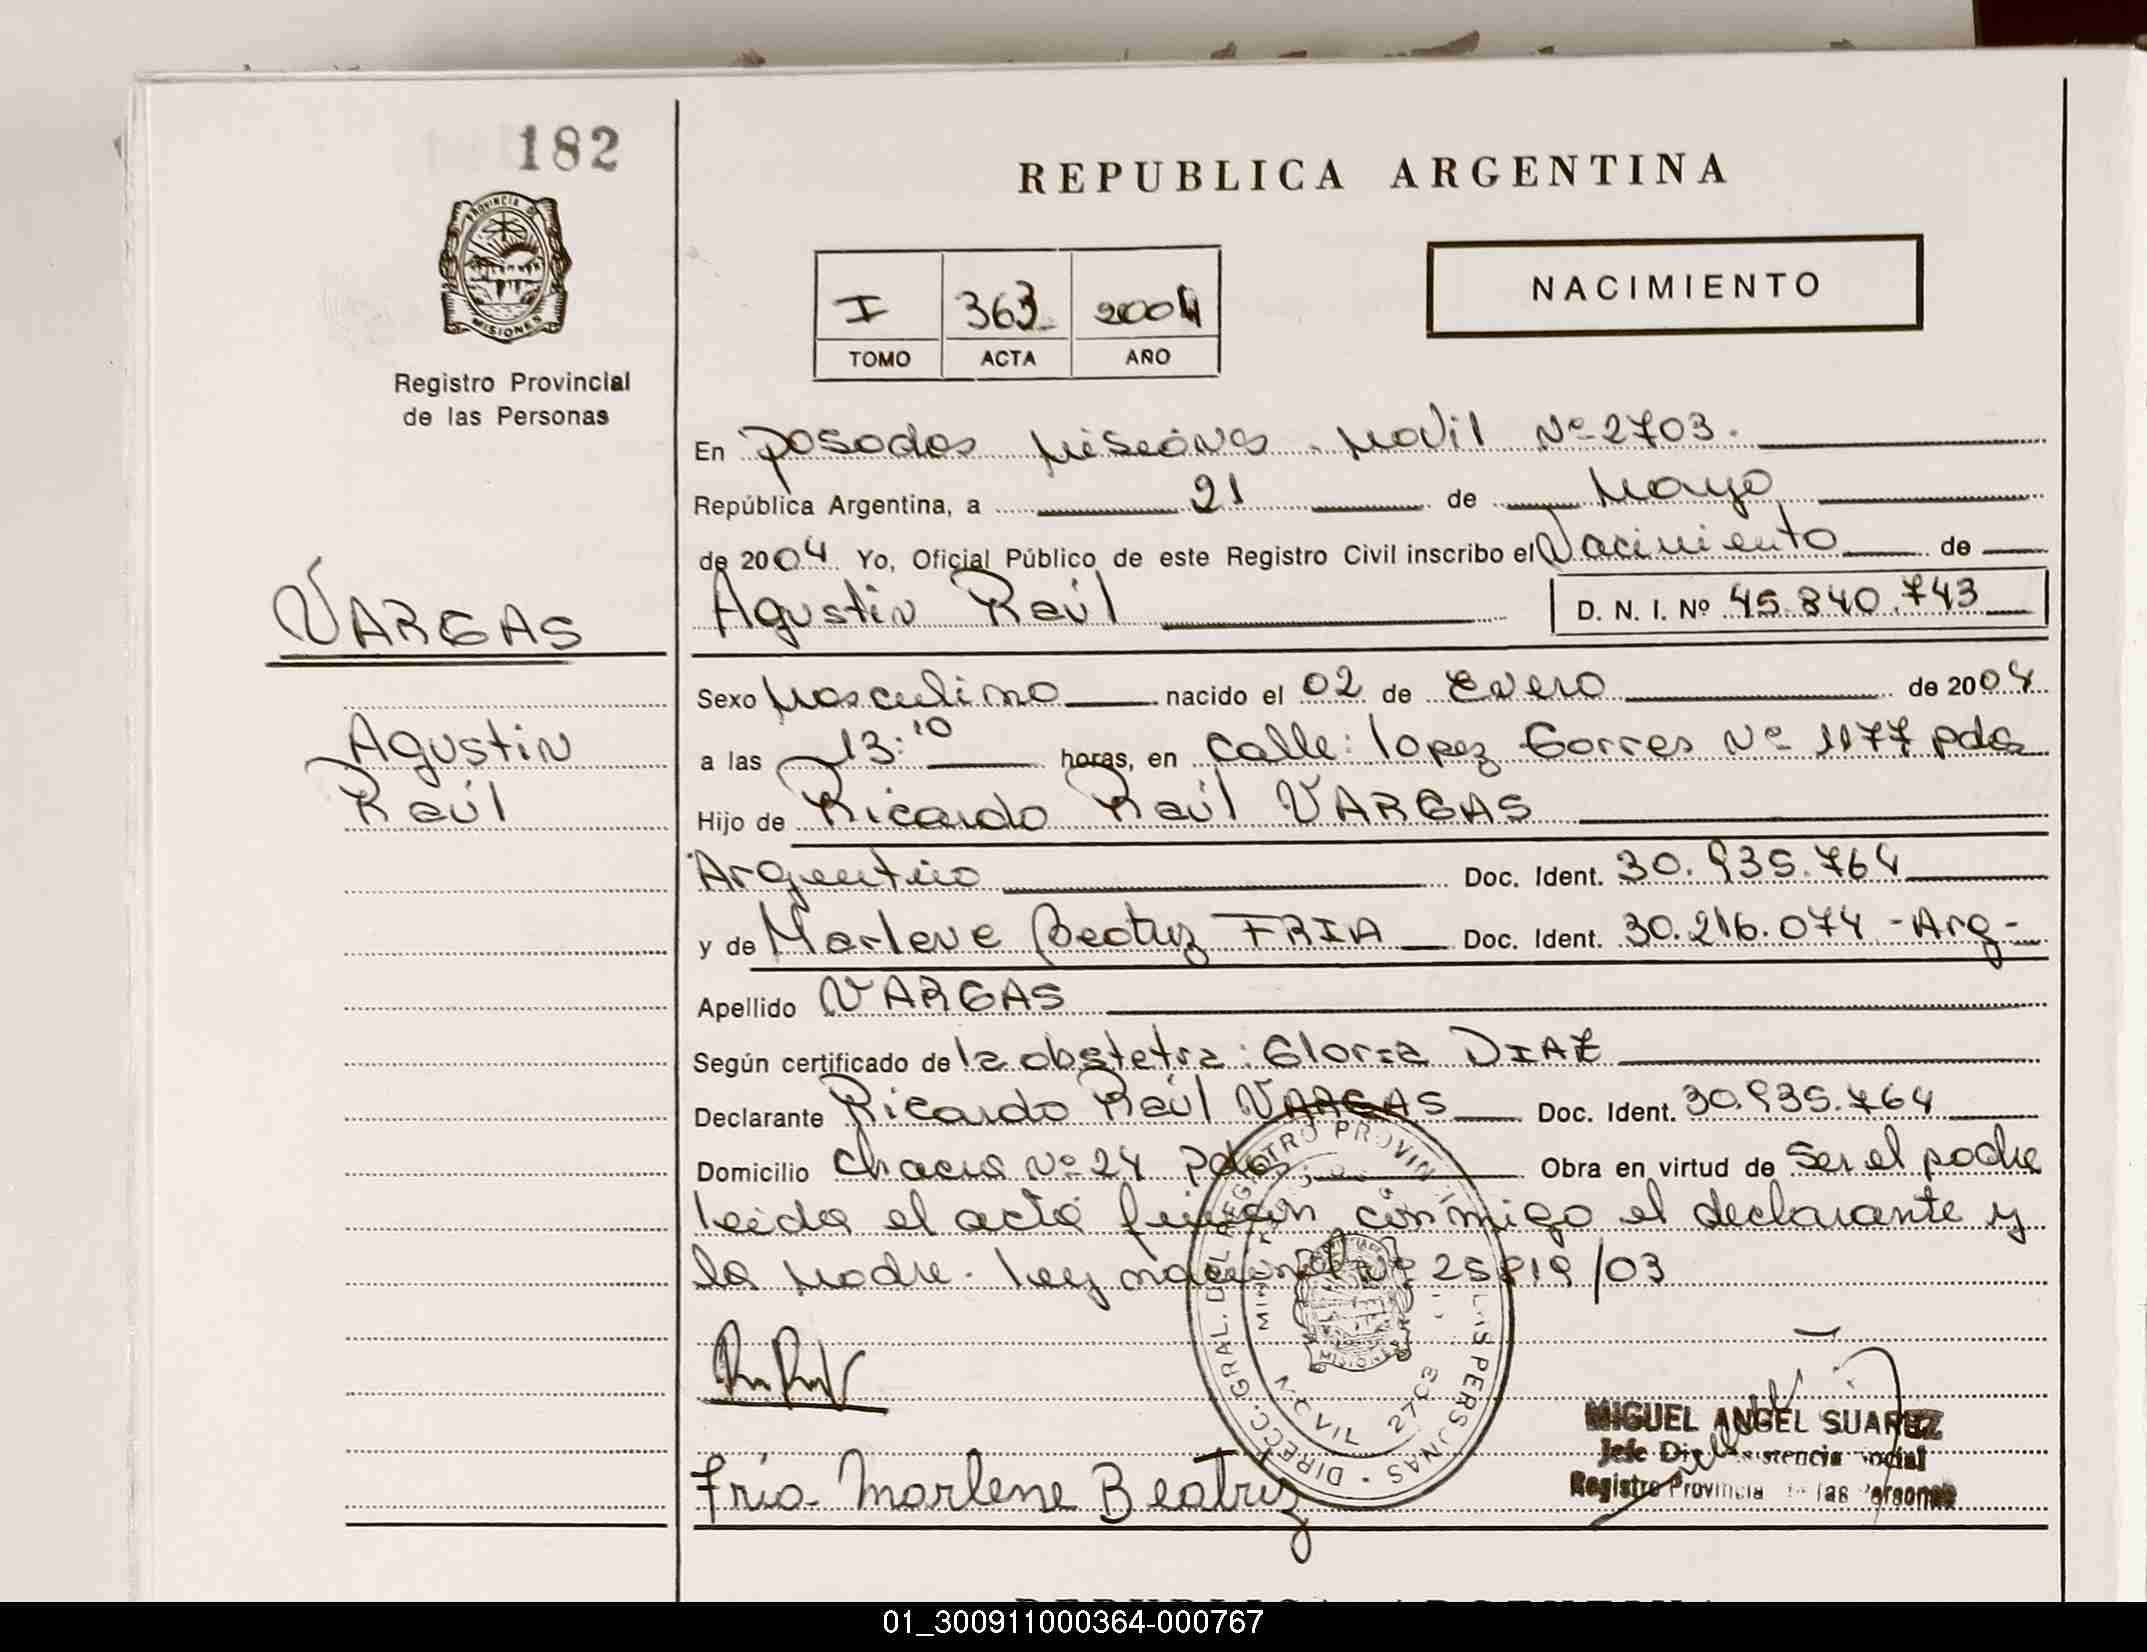 182
REPUBLICA ARGENTINA
PROVINCIA DE
MISIONES
Registro Provincial
de las Personas
NACIMIENTO
I 363 2004
TOMO ACTA AÑO
En Posadas Misiones Movil Nº 2703.
República Argentina, a 21 de Mayo
de 2004 Yo, Oficial Público de este Registro Civil inscribo el Nacimiento de
VARGAS
Agustin Raúl D. N. I. Nº 45.840.743
Sexo Masculino nacido el 02 de Enero de 2004
Agustin
Raúl
a las 13:10 horas, en calle: lopez torres Nº 1177 pdas
Hijo de Ricardo Raúl VARGAS
Argentino Doc. Ident. 30.935.764
y de Marlene Beatriz FRIA Doc. Ident. 30.216.074 - Arg -
Apellido VARGAS
Según certificado de la obstetra: Gloria DIAZ
Declarante Ricardo Raúl VARGAS Doc. Ident. 30.935.764
Domicilio chacra Nº 24 Pdas. Obra en virtud de Ser el padre
leida el acta firman conmigo el declarante y
la Madre. ley nacional Nº 25819/03
Fria Marlene Beatriz
MIGUEL ANGEL SUAREZ
Registro Provincial de las Personas
01_300911000364-000767